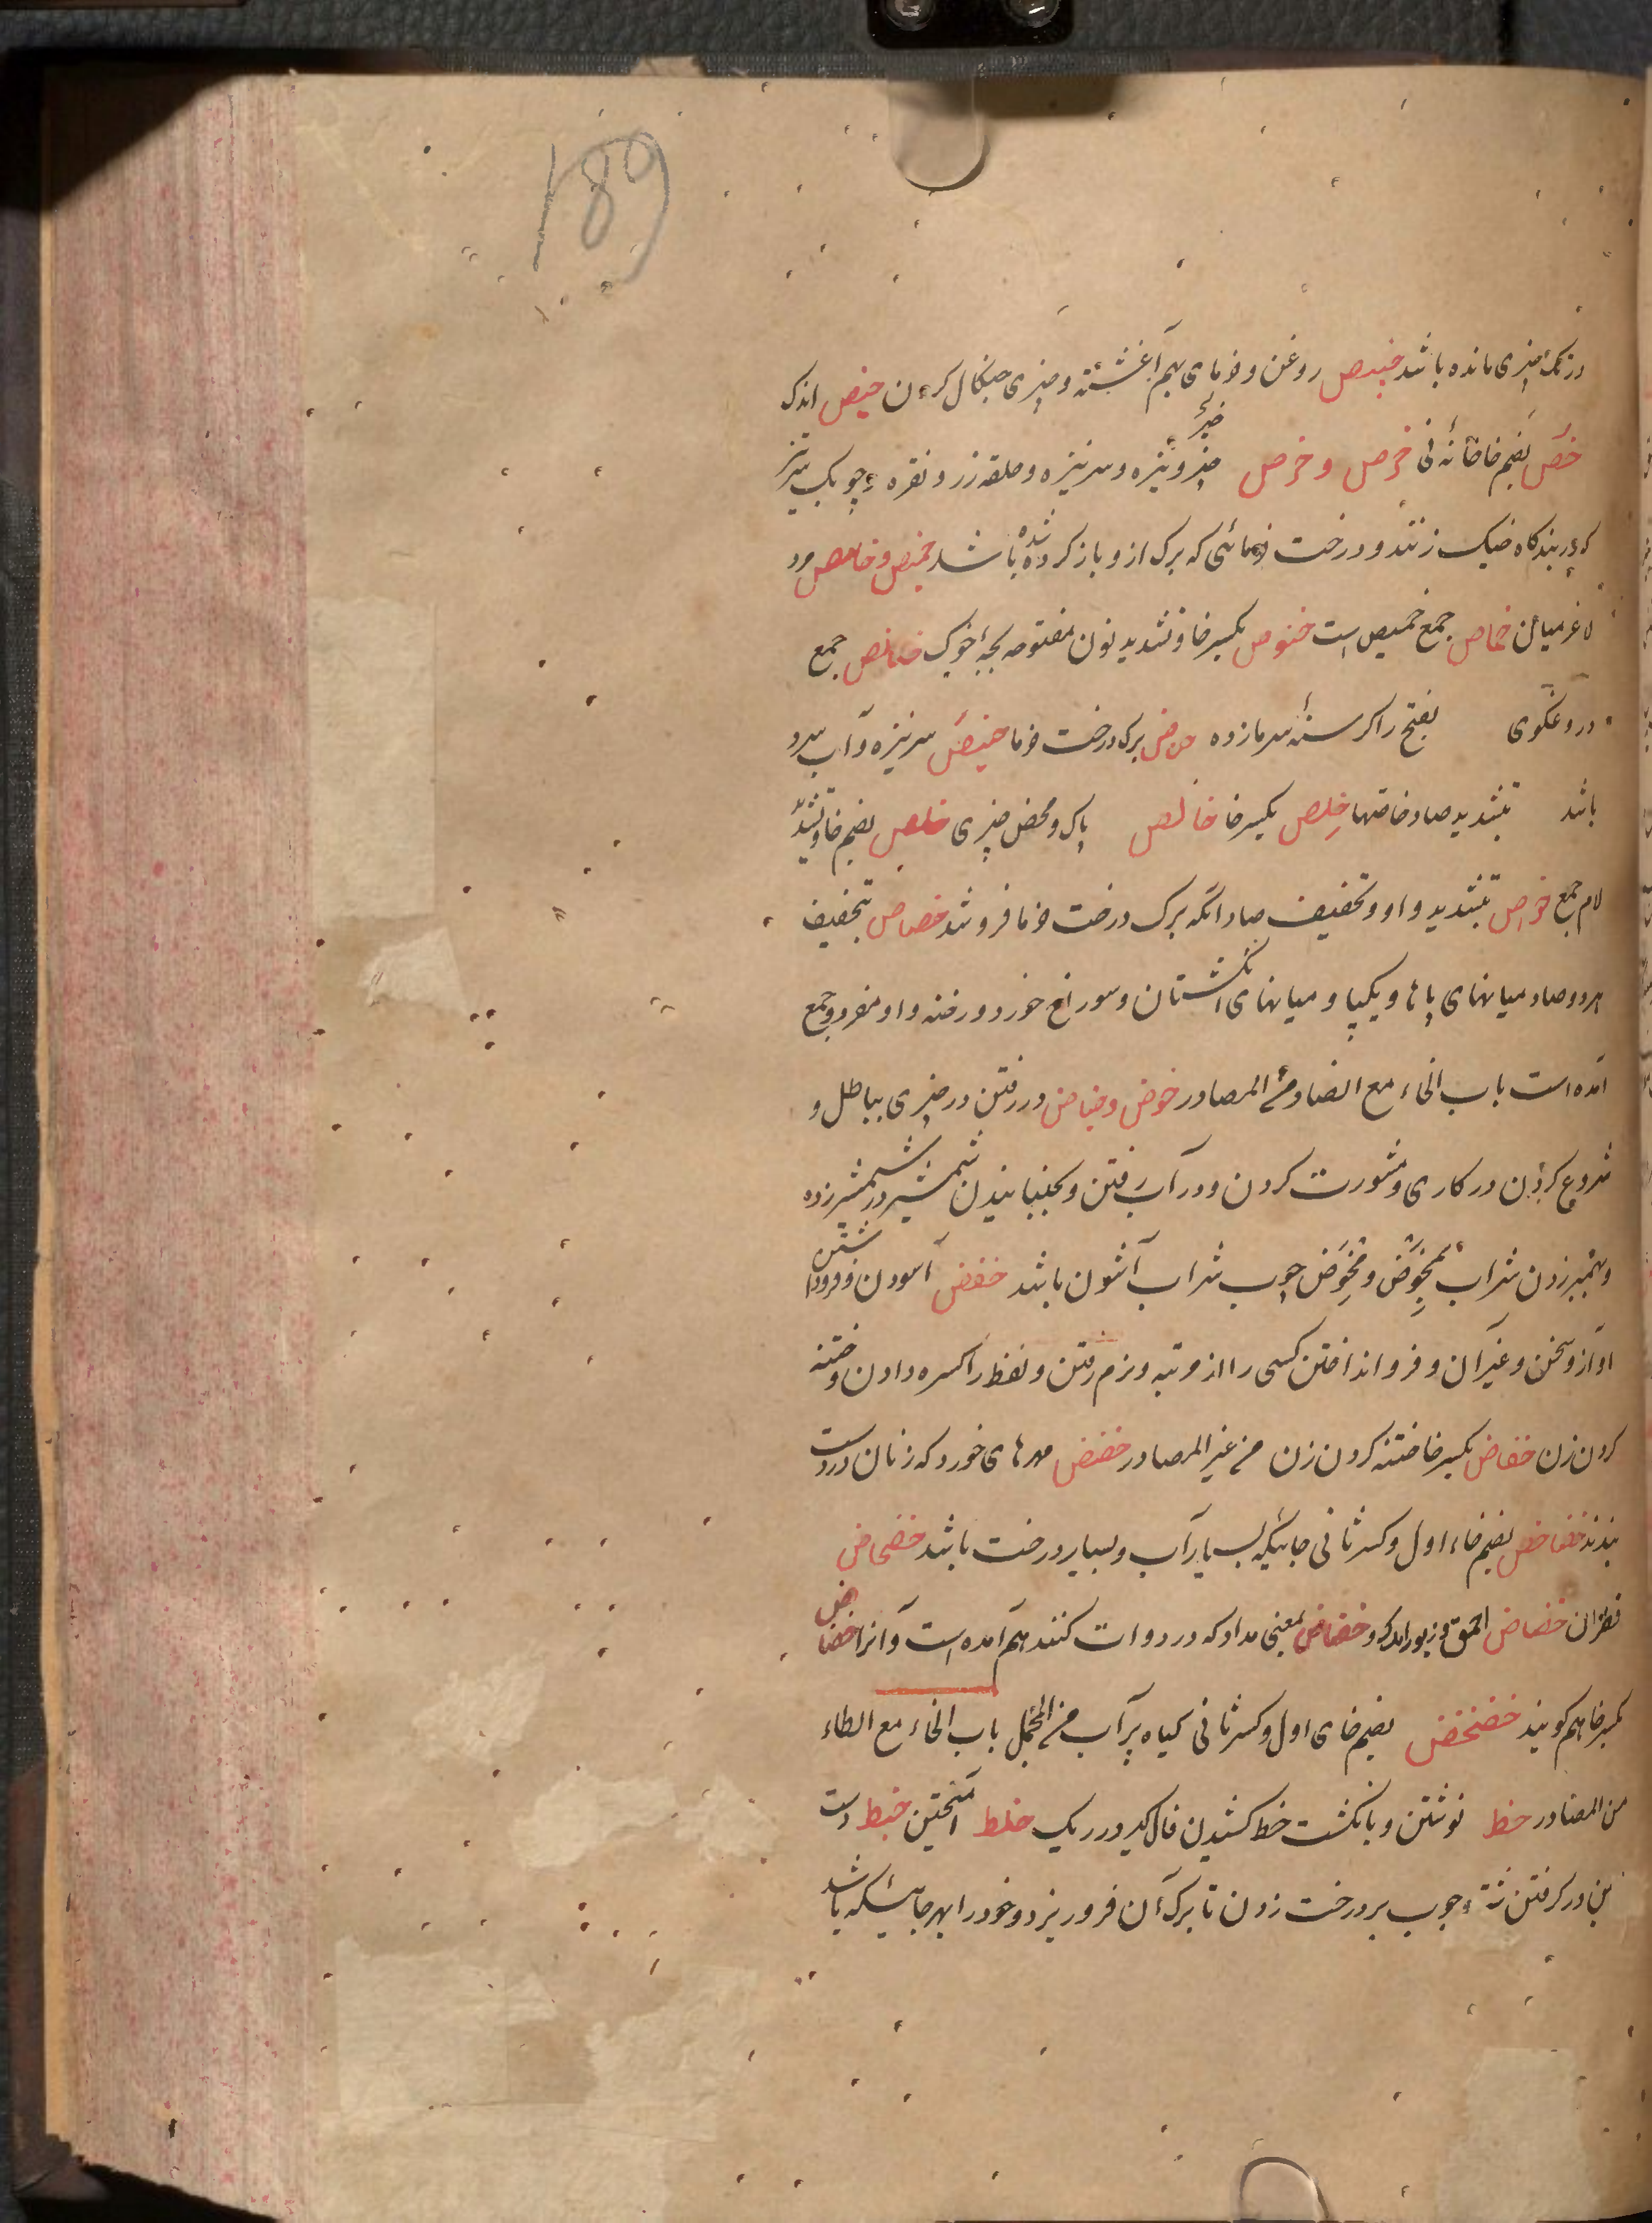 189
در تک چیزی مانده باشد خبیص روغن و خرمای بهم آغشته و چیزی چنگال کردن خیص اندک
چیزی
خص بضم خا خانه نی خرص و خرص چیز و نیزه و سر نیزه و حلقه زر و نقره و چوبک سر تیز
که در بندگاه خیک زنند و درخت خرمائی که برک از و باز کرده شده باشد خمیص و خامص مرد
لاغر میان خماص جمع خمیص است خنوص بکسر خا و تشدید نون مفتوحه بچهٔ خوک خنانیص جمع
دروغگوی بفتح را گرسنه سرمازده خوص برک درخت خرما خرص سر نیزه و آب سرد
باشد بتشدید صاد خاصتها خلص بکسر خا خالص پاک و محض چیزی خلص بضم خا و تشدید
لام جمع خواص بتشدید واو و تخفیف صاد آنکه برک درخت خرما فروشد خصاص بتخفیف
هر دو صاد میانهای پاها و یکپا و میانهای انگشتان و سوراخ خورد و رخنه و او مفرد و جمع
آمده است باب الخاء مع الضاد من المصادر خوض و خیاض در رفتن در چیزی بباطل و
شروع کردن در کاری و مشورت کردن و در آب رفتن و بجنبانیدن شمشیر در شمشیر زده
و بهم بر زدن شراب مخوض و مخوض چوب شراب آشون باشد خفض آسودن و فرو داشتن
آواز و سخن و غیر آن و فرو انداختن کسی را از مرتبه و نرم رفتن و لفظ را کسره دادن و ختنه
کردن زن خفاض بکسر خا ختنه کردن زن من غیر المصادر خضض مهرهای خورد که زنان در دست
بندند خضاخض بضم خاء اول و کسر ثانی جائیکه بسیار آب و بسیار درخت باشد خضخاض
قطران خضاض احمق و زیور اندک و خضاض بمعنی مداد که در دوات کنند هم آمده است و آنرا خضاض
بکسر خا هم گویند خضخض بضم خای اول و کسر ثانی گیاه پر آب من المجمل باب الخاء مع الطاء
من المصادر خط نوشتن و بانگشت خط کشیدن فال گیر در ریک خلط آمیختن خبط دست
بزدن و چوب بر درخت زدن تا برک آن فرو ریزد و خود را بهر جائیکه باشد